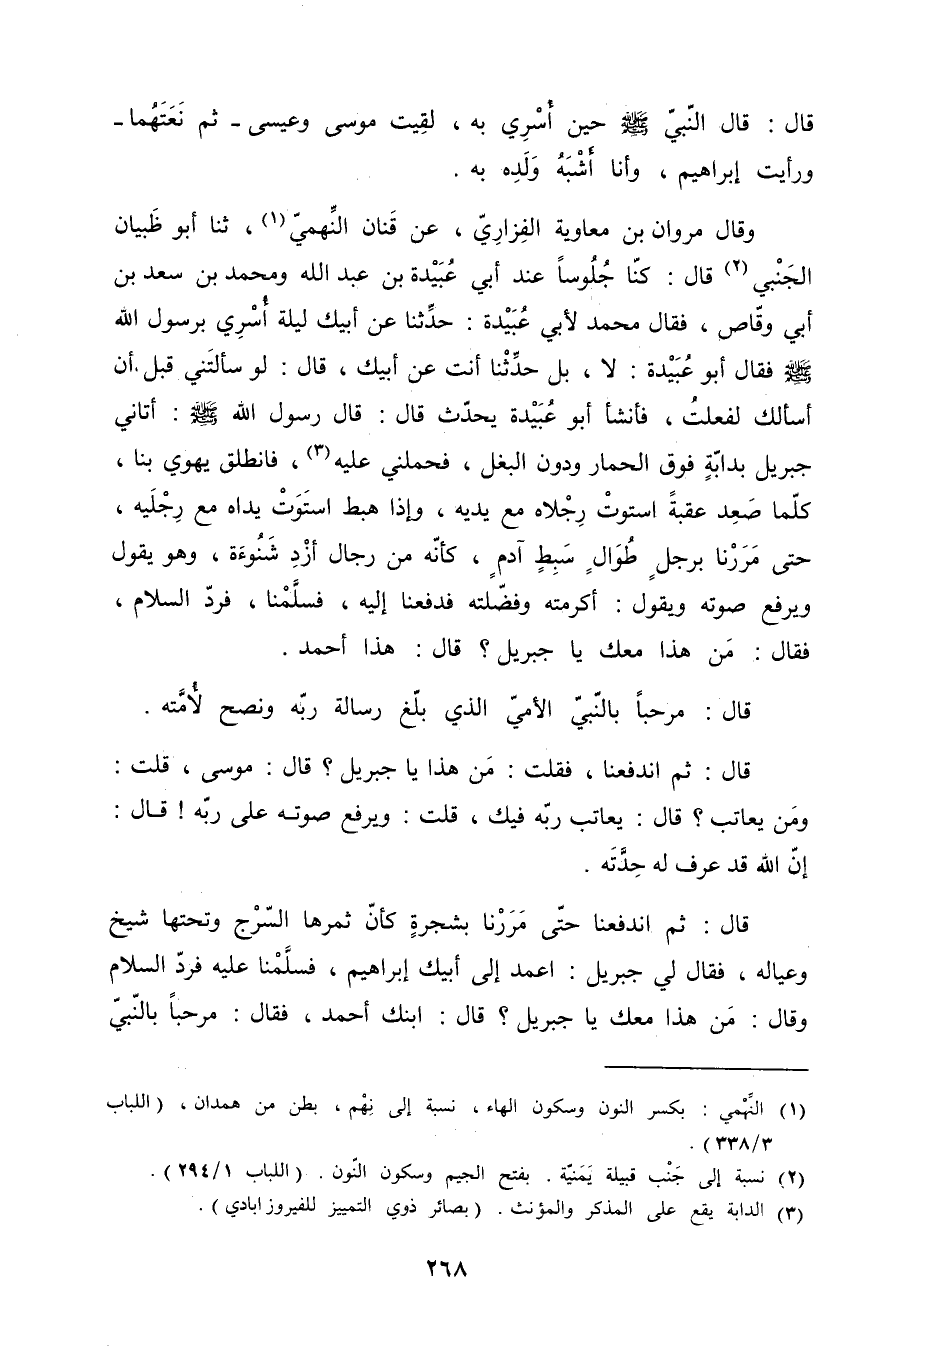 قال : قال النّبيّ ﷺ حين أُسْرِي به ، لقِيت موسى وعيسى ـ ثم نَعَتَهُما ـ
ورأيت إبراهيم ، وأنا أَشْبَهُ وَلَدِه به .
وقال مروان بن معاوية الفِزاريّ ، عن قَنان النِّهميّ(١) ، ثنا أبو ظَبيان
الجَنْبي(٢) قال : كنّا جُلُوساً عند أبي عُبَيْدة بن عبد الله ومحمد بن سعد بن
أبي وقّاص ، فقال محمد لأبي عُبَيْدة : حدِّثنا عن أبيك ليلة أُسْرِي برسول الله
ﷺ فقال أبو عُبَيْدة : لا ، بل حدِّثْنا أنت عن أبيك ، قال : لو سألتَني قبل أن
أسألك لفعلتُ ، فأنشأ أبو عُبَيْدة يحدّث قال : قال رسول الله ﷺ : أتاني
جبريل بدابّةٍ فوق الحمار ودون البغل ، فحملني عليه(٣) ، فانطلق يهوي بنا ،
كلّما صَعِد عقبةً استوتْ رِجْلاه مع يديه ، وإذا هبط استَوَتْ يداه مع رِجْلَيه ،
حتى مَرَرْنا برجلٍ طُوَالٍ سَبِطٍ آدمٍ ، كأنّه من رجال أزْدِ شَنُوءَة ، وهو يقول
ويرفع صوته ويقول : أكرمته وفضّلته فدفعنا إليه ، فسلَّمْنا ، فردّ السلام ،
فقال : مَن هذا معك يا جبريل ؟ قال : هذا أحمد .
قال : مرحباً بالنّبيّ الأميّ الذي بلّغ رسالة ربّه ونصح لأُمَّته .
قال : ثم اندفعنا ، فقلت : مَن هذا يا جبريل ؟ قال : موسى ، قلت :
ومَن يعاتب ؟ قال : يعاتب ربّه فيك ، قلت : ويرفع صوتـه على ربّه ! قـال :
إنّ الله قد عرف له حِدَّتَه .
قال : ثم اندفعنا حتّى مَرَرْنا بشجرةٍ كأنّ ثمرها السّرْج وتحتها شيخ
وعياله ، فقال لي جبريل : اعمد إلى أبيك إبراهيم ، فسلَّمْنا عليه فردّ السلام
وقال : مَن هذا معك يا جبريل ؟ قال : ابنك أحمد ، فقال : مرحباً بالنّبيّ
(١) النِّهْمي : بكسر النون وسكون الهاء ، نسبة إلى نِهْم ، بطن من همدان ، ( اللباب
٣/٣٣٨ ) .
(٢) نسبة إلى جَنْب قبيلة يَمَنيّة . بفتح الجيم وسكون النّون . ( اللباب ١/٢٩٤ ) .
(٣) الدابة يقع على المذكر والمؤنث . ( بصائر ذوي التمييز للفيروزابادي ) .
٢٦٨